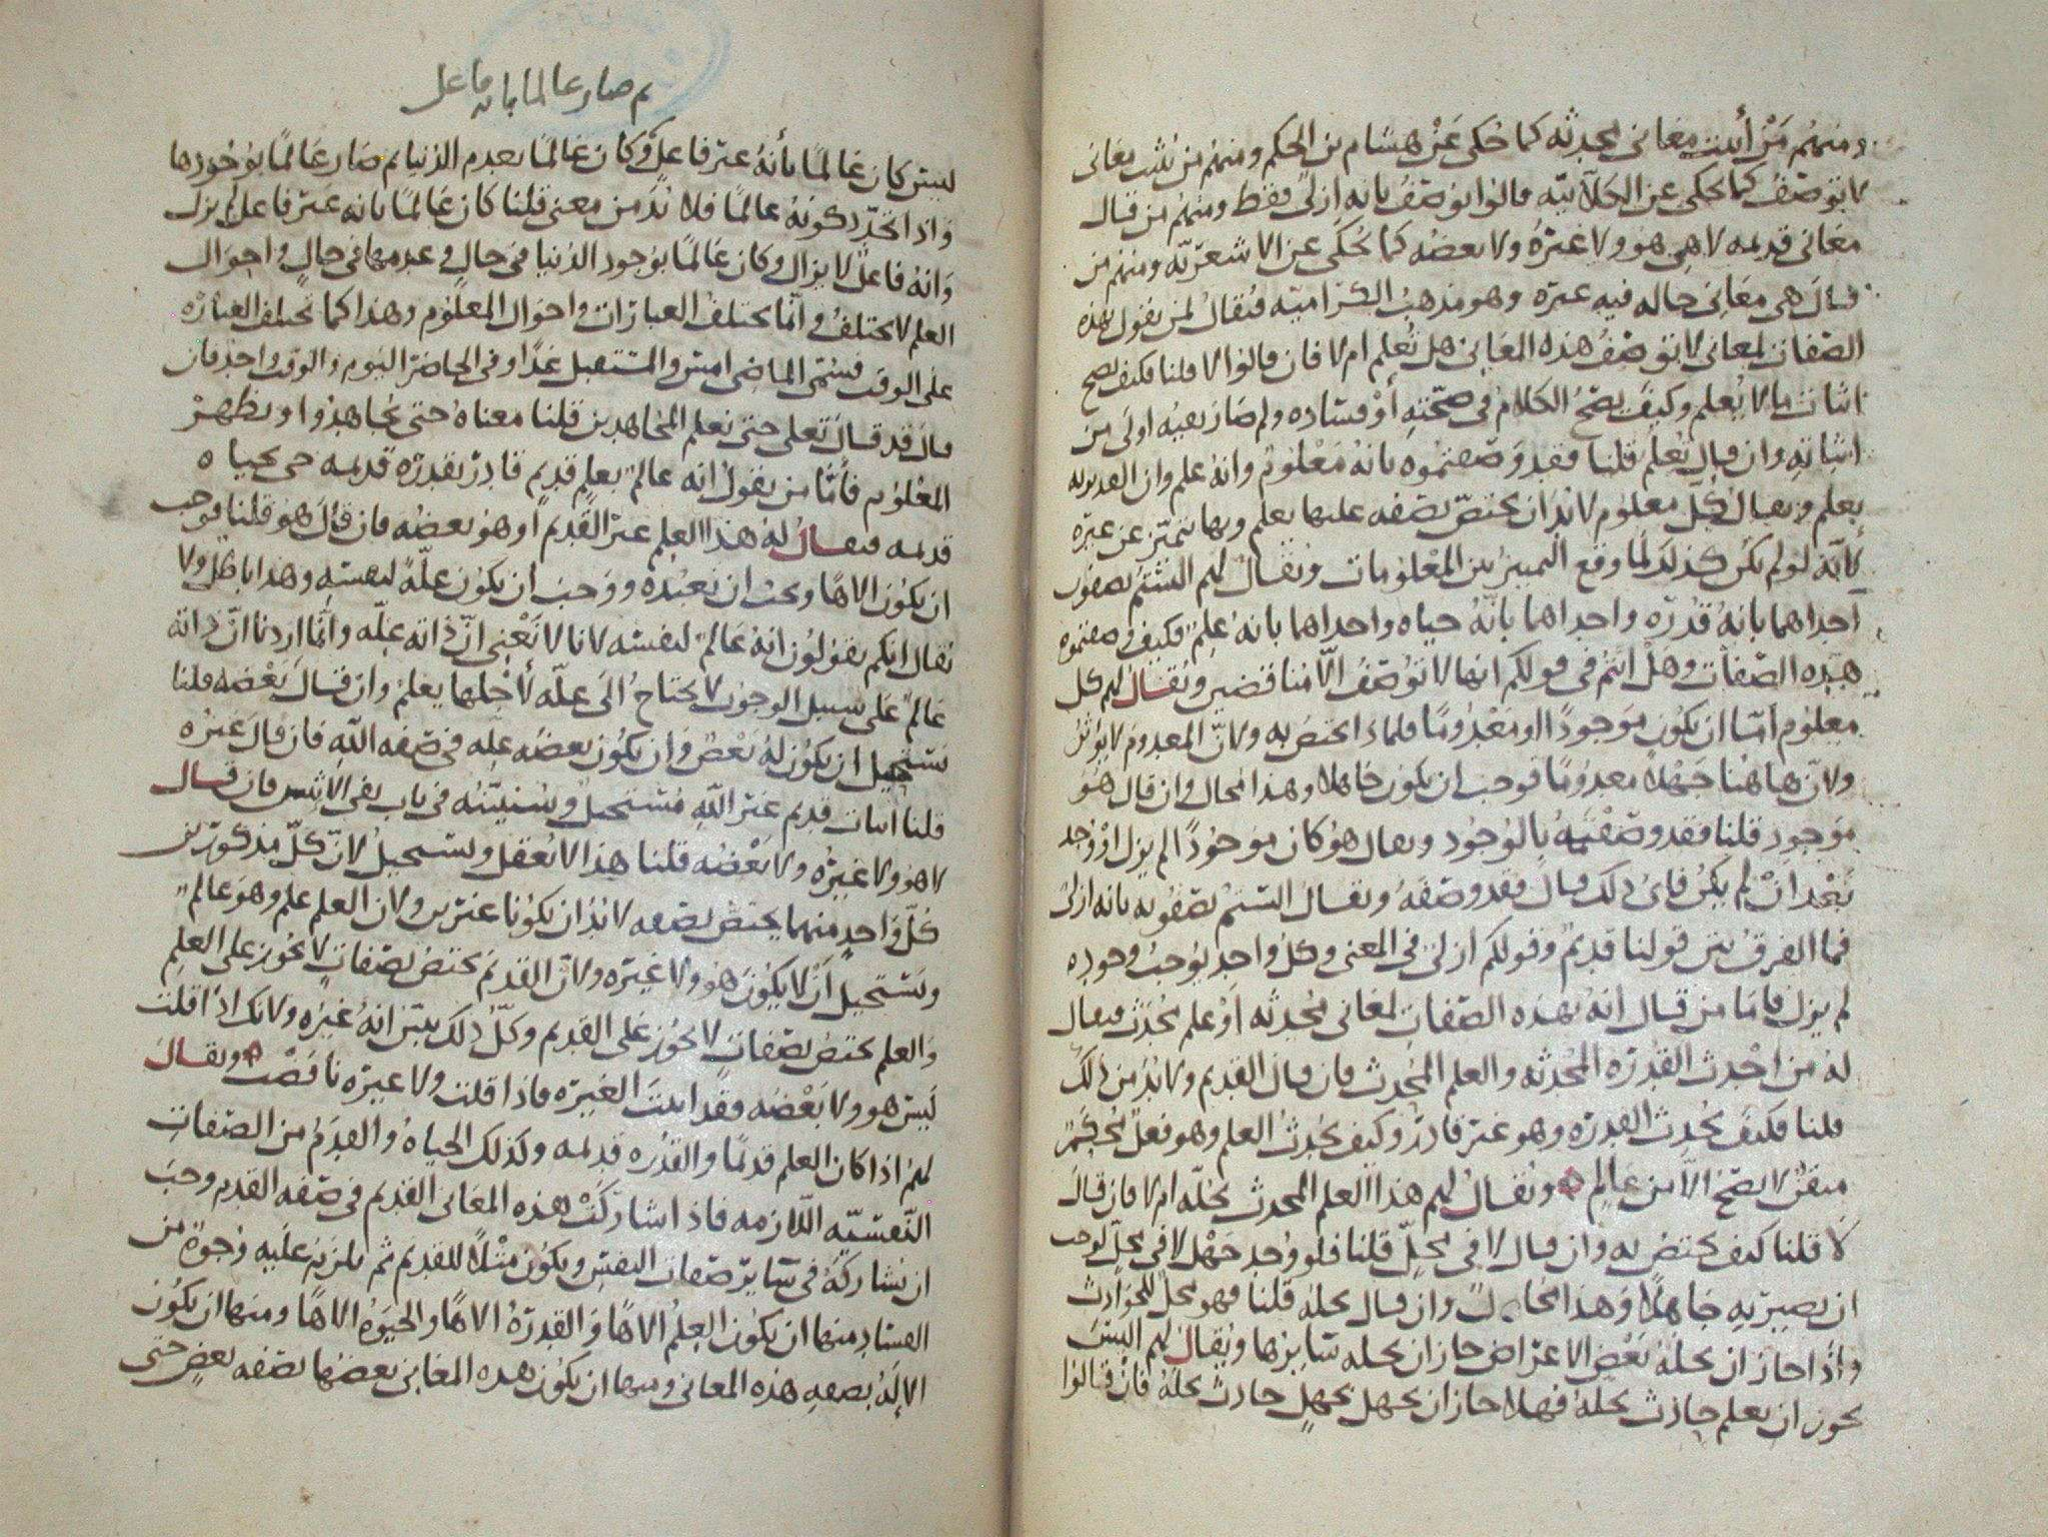 ومنهم من أثبت معاني محدثه كما حكى عن هشام بن الحكم ومنهم من يثبت معاني
لا توصف كما يحكى عن الكلابيه قالوا يوصف بانه ازلي فقط ومنهم من قال
معاني قديمه لا هي هو ولا غيره ولا بعضه كما يحكى عن الاشعريه ومنهم من
قال هي معاني حاله فيه غيره وهو مذهب الكراميه فيقال لمن يقول بهذه
الصفات لمعاني لا توصف هذه المعاني هل تعلم ام لا فان قالوا لا قلنا فكيف يصح
اثبات ما لا يعلم وكيف يصح الكلام في صحته أو فساده ولم صار نفيه اولى من
اثباته وان قال تعلم قلنا فقد وصفتموه بانه معلوم وانه علم وان القديم به
يعلم ويقال كل معلوم لا بد ان يختص بصفه عليها يعلم وبها يتميز عن غيره
لأنه لو لم يكن كذلك لما وقع التمييز بين المعلومات ويقال لهم الستم تصفون
احداهما بانه قدره واحداهما بأنه حياه واحداهما بانه علم فكيف وصفتموه
بهذه الصفات وهل انتم في قولكم انها لا توصف الا مناقضين ويقال لهم كل
معلوم أما ان يكون موجودا او معدوما فلماذا يختص به ولان المعدوم لا يؤثر
ولان هاهنا جهلا معدوما فوجب ان يكون جاهلا وهذا محال وان قال هو
موجود قلنا فقد وصفتمه بالوجود ويقال هو كان موجودا لم يزل او وجد
بعد ان لم يكن فأي ذلك قال فقد وصفه ويقال الستم تصفونه بانه ازلي
فما الفرق بين قولنا قديم وقولكم ازلي في المعنى وكل واحد يوجب وجوده
لم يزل فاما من قال انه بهذه الصفات لمعاني محدثه او علم محدث فيقال
له من احدث القدره المحدثه والعلم المحدث فان قال القديم ولا بد من ذلك
قلنا فكيف يحدث القدره وهو غير قادر وكيف يحدث العلم وهو فعل محكم
متقن لا يصح الا من عالم ويقال لهم هذا العلم المحدث يحله ام لا فان قال
لا قلنا كيف يختص به وان قال لا في محل قلنا فلو وجد جهل لا في محل لوجب
ان يصير به جاهلا وهذا محال وان قال يحله قلنا فهو محل للحوادث
واذا جاز ان يحله بعض الاعراض جاز ان يحله سايرها ويقال لهم اليس
يجوز ان يعلم حادث يحله فهلا جاز ان يجهل بجهل حادث يحله فان قالوا
ثم صار عالما بانه فاعل
ليس كان عالما بأنه غير فاعل وكان عالما بعدم الدنيا ثم صار عالما بوجودها
واذا تجدد كونه عالما فلا بد من معنى قلنا كان عالما بانه غير فاعل لم يزل
وانه فاعل لا يزال وكان عالما بوجود الدنيا في حال وعدمها في حال واحوال
العلم لا يختلف وانما يختلف العبارات واحوال المعلوم وهذا كما تختلف العباره
على الوقت فسمى الماضي امس والمستقبل غدا وفي الحاضر اليوم والوقت واحد فان
قال قد قال تعالى حتى نعلم المجاهدين قلنا معناه حتى يجاهدوا او يظهر
المعلوم فأما من يقول انه عالم بعلم قديم قادر بقدره قديمه حي بحياه
قديمه فيقال له هذا العلم غير القديم او هو بعضه فان قال هو قلنا فوجب
ان يكون الاها ويجب ان نعبده ووجب ان يكون علة لنفسه وهذا باطل ولا
يقال انكم تقولون انه عالم لنفسه لانا لا نعني ان ذاته علة وانما اردنا ان ذاته
عالم على سبيل الوجوب لا يحتاج الى علة لأجلها يعلم وان قال بعضه قلنا
يستحيل ان يكون له بعض وان يكون بعضه عله في صفه الله فان قال غيره
قلنا اثبات قديم غير الله مستحيل وسنبينه في باب نفي الاثنين فان قال
لا هو ولا غيره ولا بعضه قلنا هذا لا يعقل ويستحيل لان كل مذكورين
كل واحد منهما يختص بصفه لا بد ان يكونا غيرين ولان العلم علم وهو عالم
ويستحيل أن لا يكون هو ولا غيره ولان القديم يختص بصفات لا تجوز على العلم
والعلم يختص بصفات لا تجوز على القديم وكل ذلك يبين انه غيره ولانك اذا قلت
ليس هو ولا بعضه فقد اثبت الغيره فاذا قلت ولا غيره ناقضت ويقال
لهم اذا كان العلم قديما والقدره قديمه وكذلك الحياه والقدم من الصفات
النفسيه اللازمه فاذا شاركت هذه المعاني القديم في صفه القدم وجب
ان تشاركه في ساير صفات النفس ويكون مثلا للقديم ثم يلزم عليه وجوه من
الفساد منها ان يكون العلم الاها والقدرة الاها والحيوة الاها ومنها ان يكون
الاله بصفه هذه المعاني ومنها ان يكون هذه المعاني بعضها بصفه بعض حتى